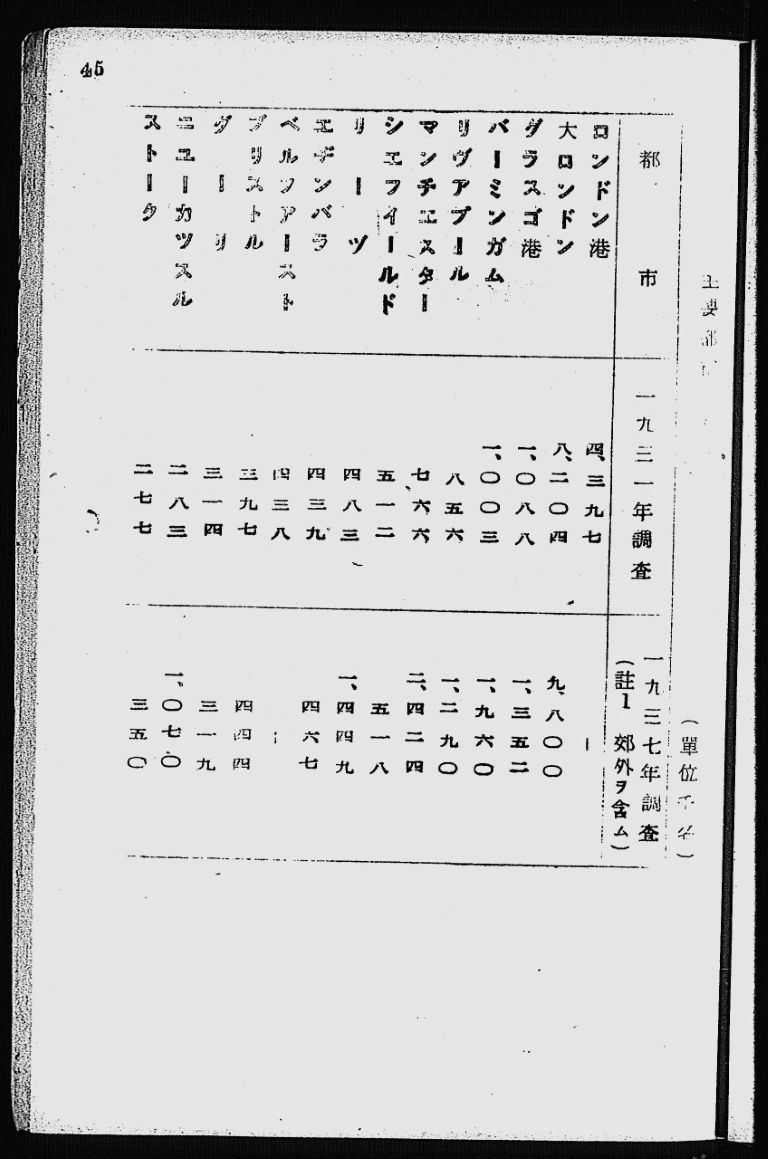 45
主要都市 （單位千名）
都市 一九三一年調査 一九三七年調査
（註1 郊外ヲ含ム）
ロンドン港 四、三九七 ー
大ロンドン 八、二〇四 九、八〇〇
グラスゴ港 一、〇八八 一、三五二
バーミンガム 一、〇〇三 一、九六〇
リヴアプール 八五六 一、二九〇
マンチエスター 七六六 二、四二四
シエフイールド 五一二 五一八
リーツ 四八三 一、四四九
エヂンバラ 四三九 四六七
ベルフアースト 四三八 ー
ブリストル 三九七 四四四
グーリ 三一四 三一九
ニユーカツスル 二八三 一、〇七〇
ストーク 二七七 三五〇